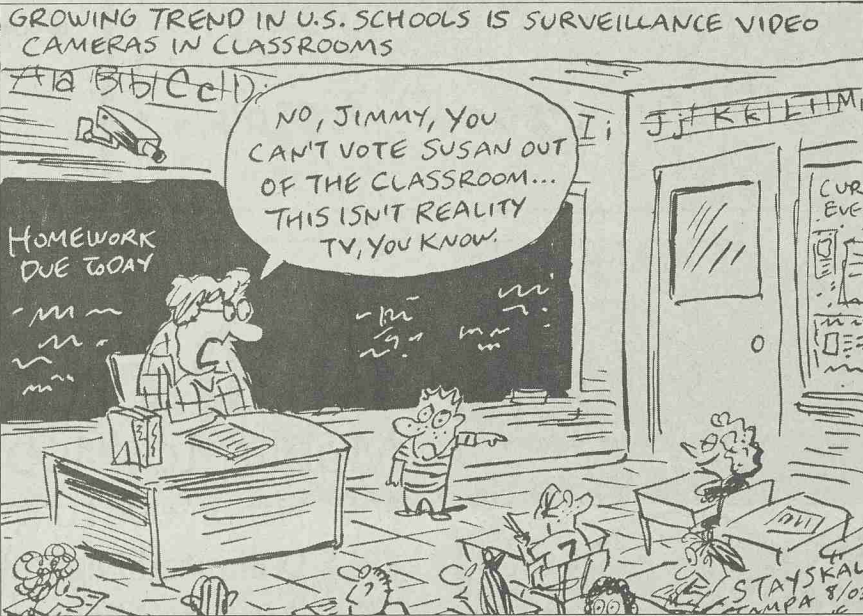 GROWING TREND IN U.S. SCHOOLS IS SURVEILLANCE VIDEO
CAMERAS IN CLASSROOMS
Aa Bb Cc D
I i Jj Kk Ll M
NO, JIMMY, YOU
CAN'T VOTE SUSAN OUT
OF THE CLASSROOM...
THIS ISN'T REALITY
TV, YOU KNOW.
CUR
EVE
HOMEWORK
DUE TODAY
STAYSKAL
TAMPA 8/0